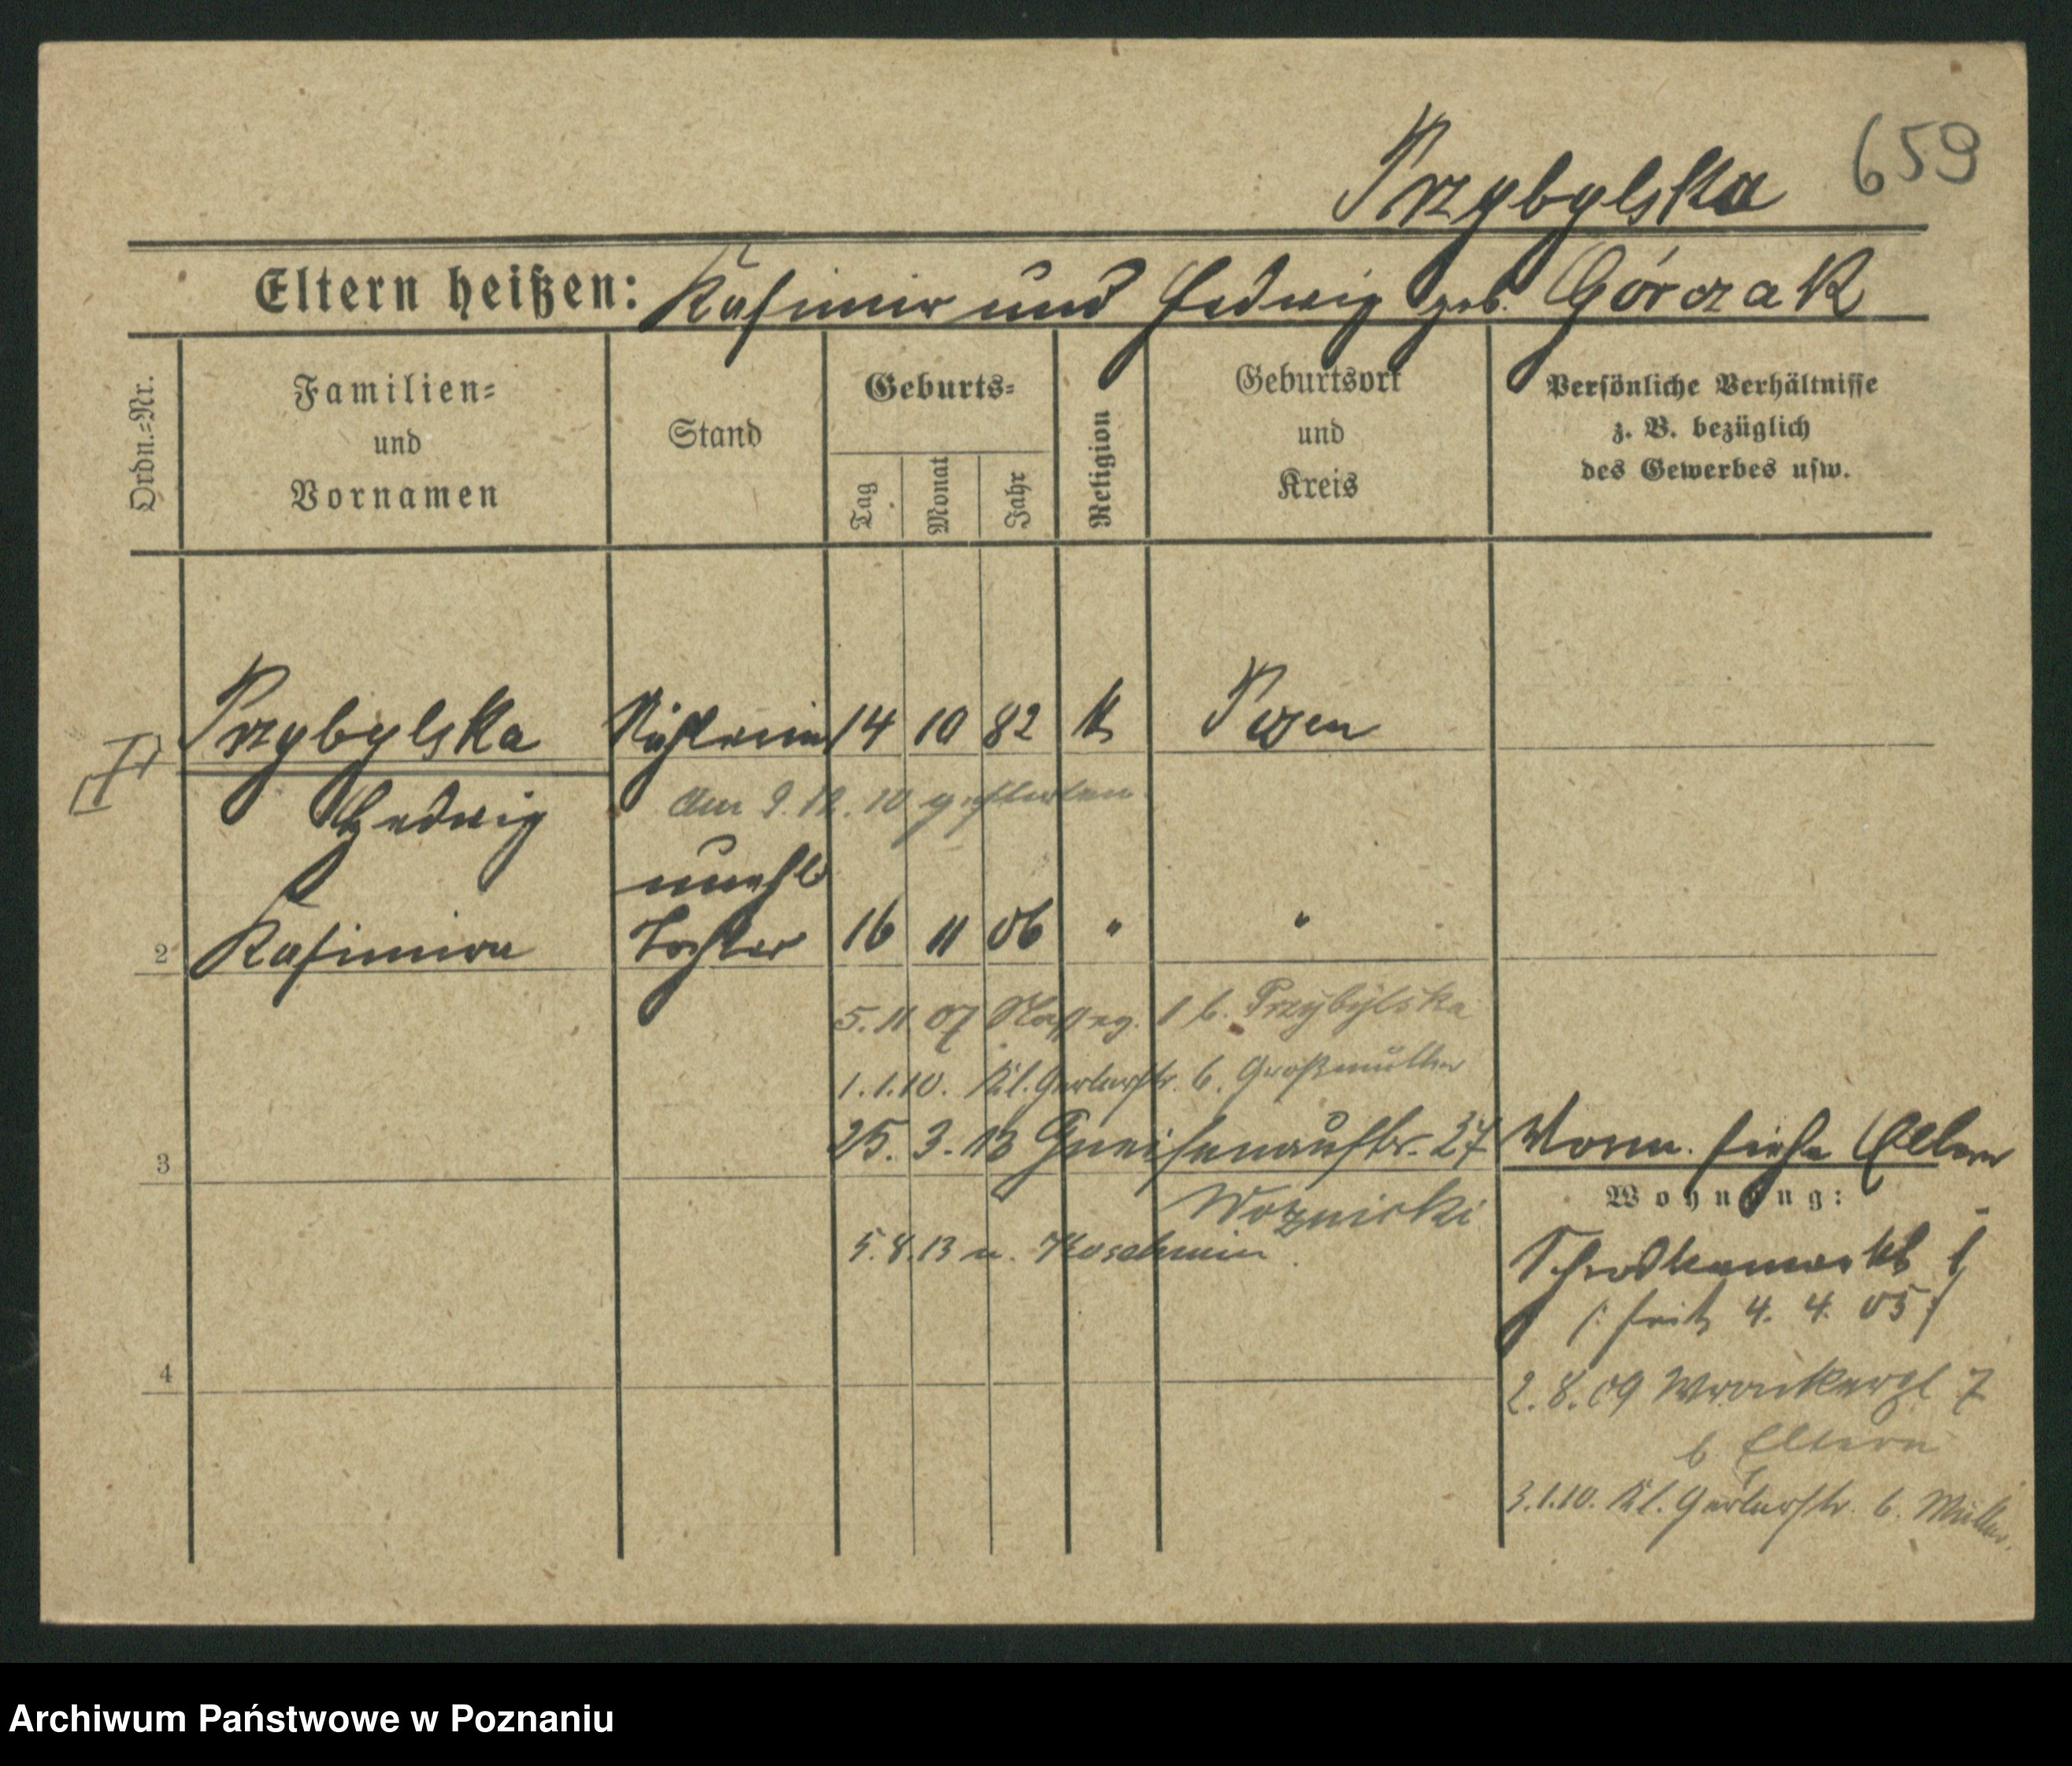 Przybylska 659
Eltern heißen: Kasimir und Hedwig geb. Górczak
Ordn.=Nr.
Familien=
und
Vornamen
Stand
Geburts=
Tag
Monat
Jahr
Religion
Geburtsort
und
Kreis
Persönliche Verhältnisse
z. B. bezüglich
des Gewerbes usw.
Przybylska Näherin 14 10 82 k Posen
Hedwig
am 9. 12. 10 gestorben
unehl
2 Kasimira Tochter 16 11 06 " "
5. 11 07 b. Przybylska
1.1.10. Kl. Gerberstr. b. Großmutter
25. 3. 13 Gneisenaustr. 27
3
Woznicki
5.8.13 n. Koschmin
4
Vorm. siehe Eltern
Wohnung:
Schrodkamarkt 1
(: seit 4. 4. 05 :)
2.8.09 Wronkerpl 7
b Eltern
3.1.10. Kl. Gerberstr. b. Mutter.
Archiwum Państwowe w Poznaniu